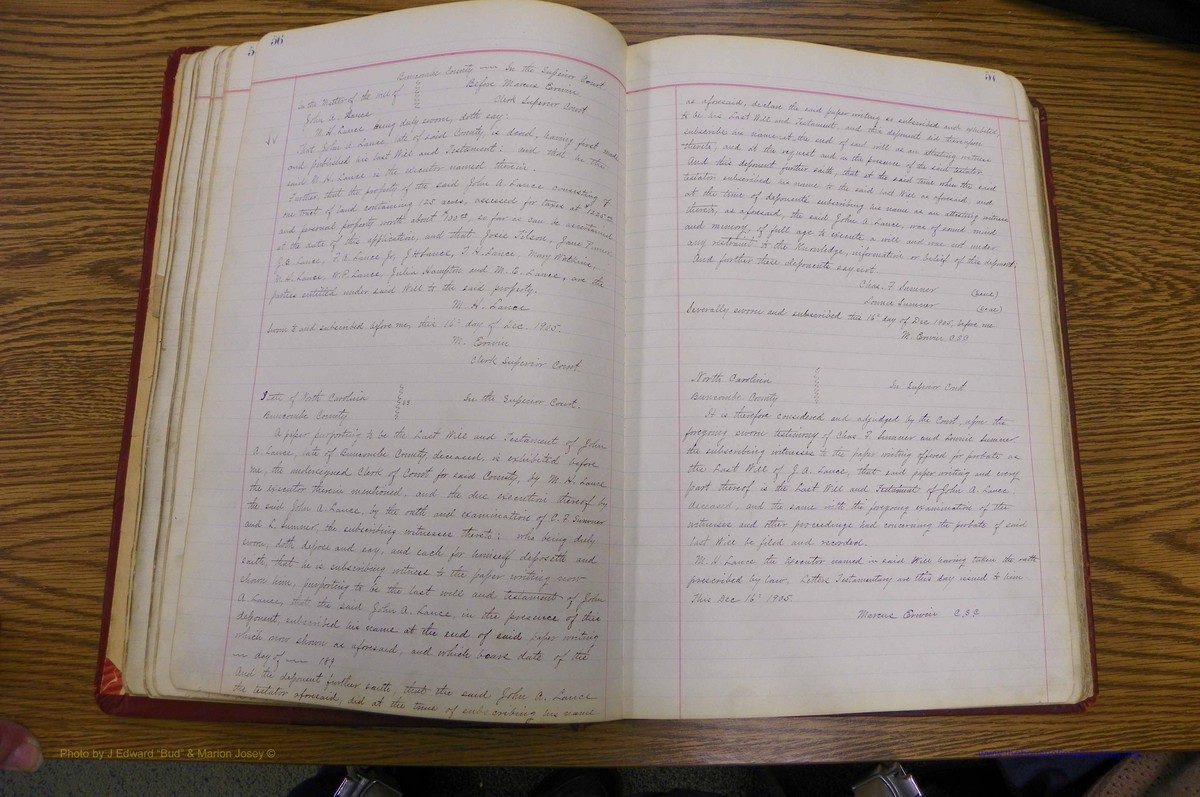 56
Buncombe County — In the Superior Court
In the Matter of the will of
Before Marcus Erwin
John A. Lance
Clerk Superior Court
M. H. Lance being duly sworn, doth say:
That John A. Lance, late of said County, is dead, having first made
and published his last Will and Testament: and that he the
said M. H. Lance is the executor named therein.
Further, that the property of the said John A. Lance consisting of
one tract of land containing 125 acres, assessed for taxes at
and personal property worth about so far as can be ascertained
at the date of this application, and that Tilson, Jane
Lance, Lance Jr, J H Lance, Lance, Mary Watkins,
Lance, W.P. Lance, Julia Hampton and M. C. Lance, are the
parties entitled under said Will to the said property.
M. H. Lance
Sworn to and subscribed before me, this 16" day of Dec 1905.
M. Erwin
Clerk Superior Court
State of North Carolina
SS
In the Superior Court.
Buncombe County
A paper purporting to be the Last Will and Testament of John
A. Lance, late of Buncombe County, deceased, is exhibited before
me, the undersigned Clerk of Court for said County, by M. H. Lance
the executor therein mentioned, and the due execution thereof by
the said John A. Lance, by the oath and examination of C. F. Sumner
and L. Sumner, the subscribing witnesses thereto; who being duly
sworn, doth depose and say, and each for himself deposeth and
saith, that he is subscribing witness to the paper writing now
shown him, purporting to be the last will and testament of John
A. Lance, that the said John A. Lance, in the presence of this
deponent, subscribed his name at the end of said paper writing
which now shown as aforesaid, and which bears date of the
— day of — 189
And the deponent further saith, that the said John A. Lance
the testator aforesaid, did at the time of subscribing his name
57
as aforesaid, declare the said paper writing so subscribed and exhibited,
to be his Last Will and Testament, and this deponent did thereupon
subscribe his name at the end of said will as an attesting witness
thereto, and at the request and in the presence of the said testator.
And this deponent further saith, that at the said time when the said
testator subscribed his name to the said last Will as aforesaid, and
at the time of deponents subscribing his name as an attesting witness
thereto, as aforesaid, the said John A Lance, was of sound mind
and memory, of full age to execute a will and was not under
any restraint to the knowledge, information or belief of this deponent:
And further these deponents say not.
Chas. F. Sumner (Seal)
Lonnie Sumner (Seal)
Severally sworn and subscribed this 16" day of Dec 1905, before me
M. Erwin C.S.C.
North Carolina
In Superior Court
Buncombe County
It is therefore considered and adjudged by the Court, after the
foregoing sworn testimony of Chas F. Sumner and Lonnie Sumner
the subscribing witnesses to the paper writing offered for probate as
the Last Will of J. A. Lance, that said paper writing and every
part thereof is the Last Will and Testament of John A Lance
deceased, and the same with the foregoing examination of the
witnesses and other proceedings had concerning the probate of said
last Will be filed and recorded.
M. H Lance, the Executor named in said Will having taken the oath
prescribed by law. Letters Testamentary are this day issued to him
This Dec 16" 1905.
Marcus Erwin C.S.C.
Photo by J Edward "Bud" & Marion Josey ©